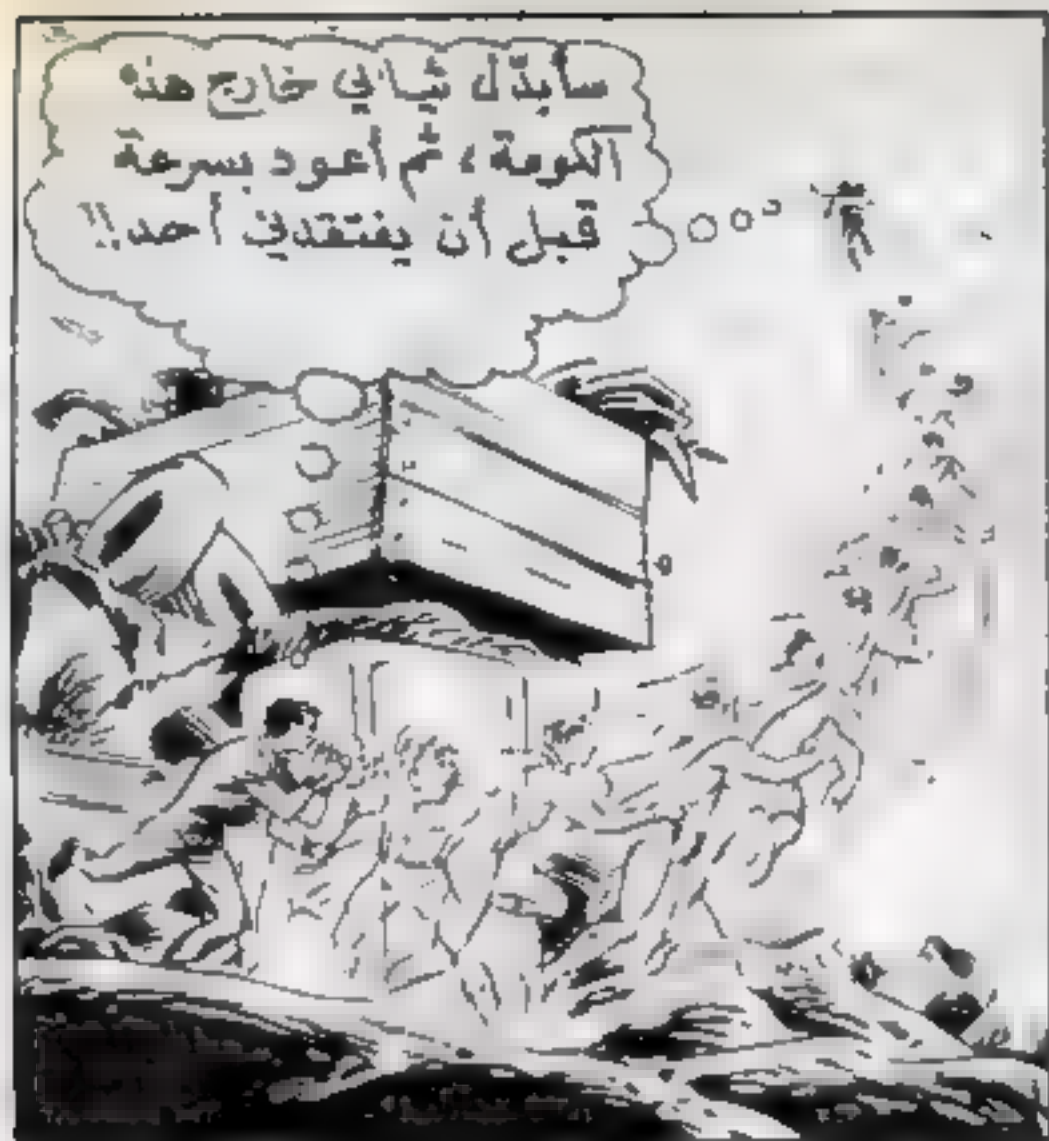 سأبدّل ثيابي خارج هذه
الكومة، ثم أعود بسرعة
قبل أن يفتقدني أحد!!